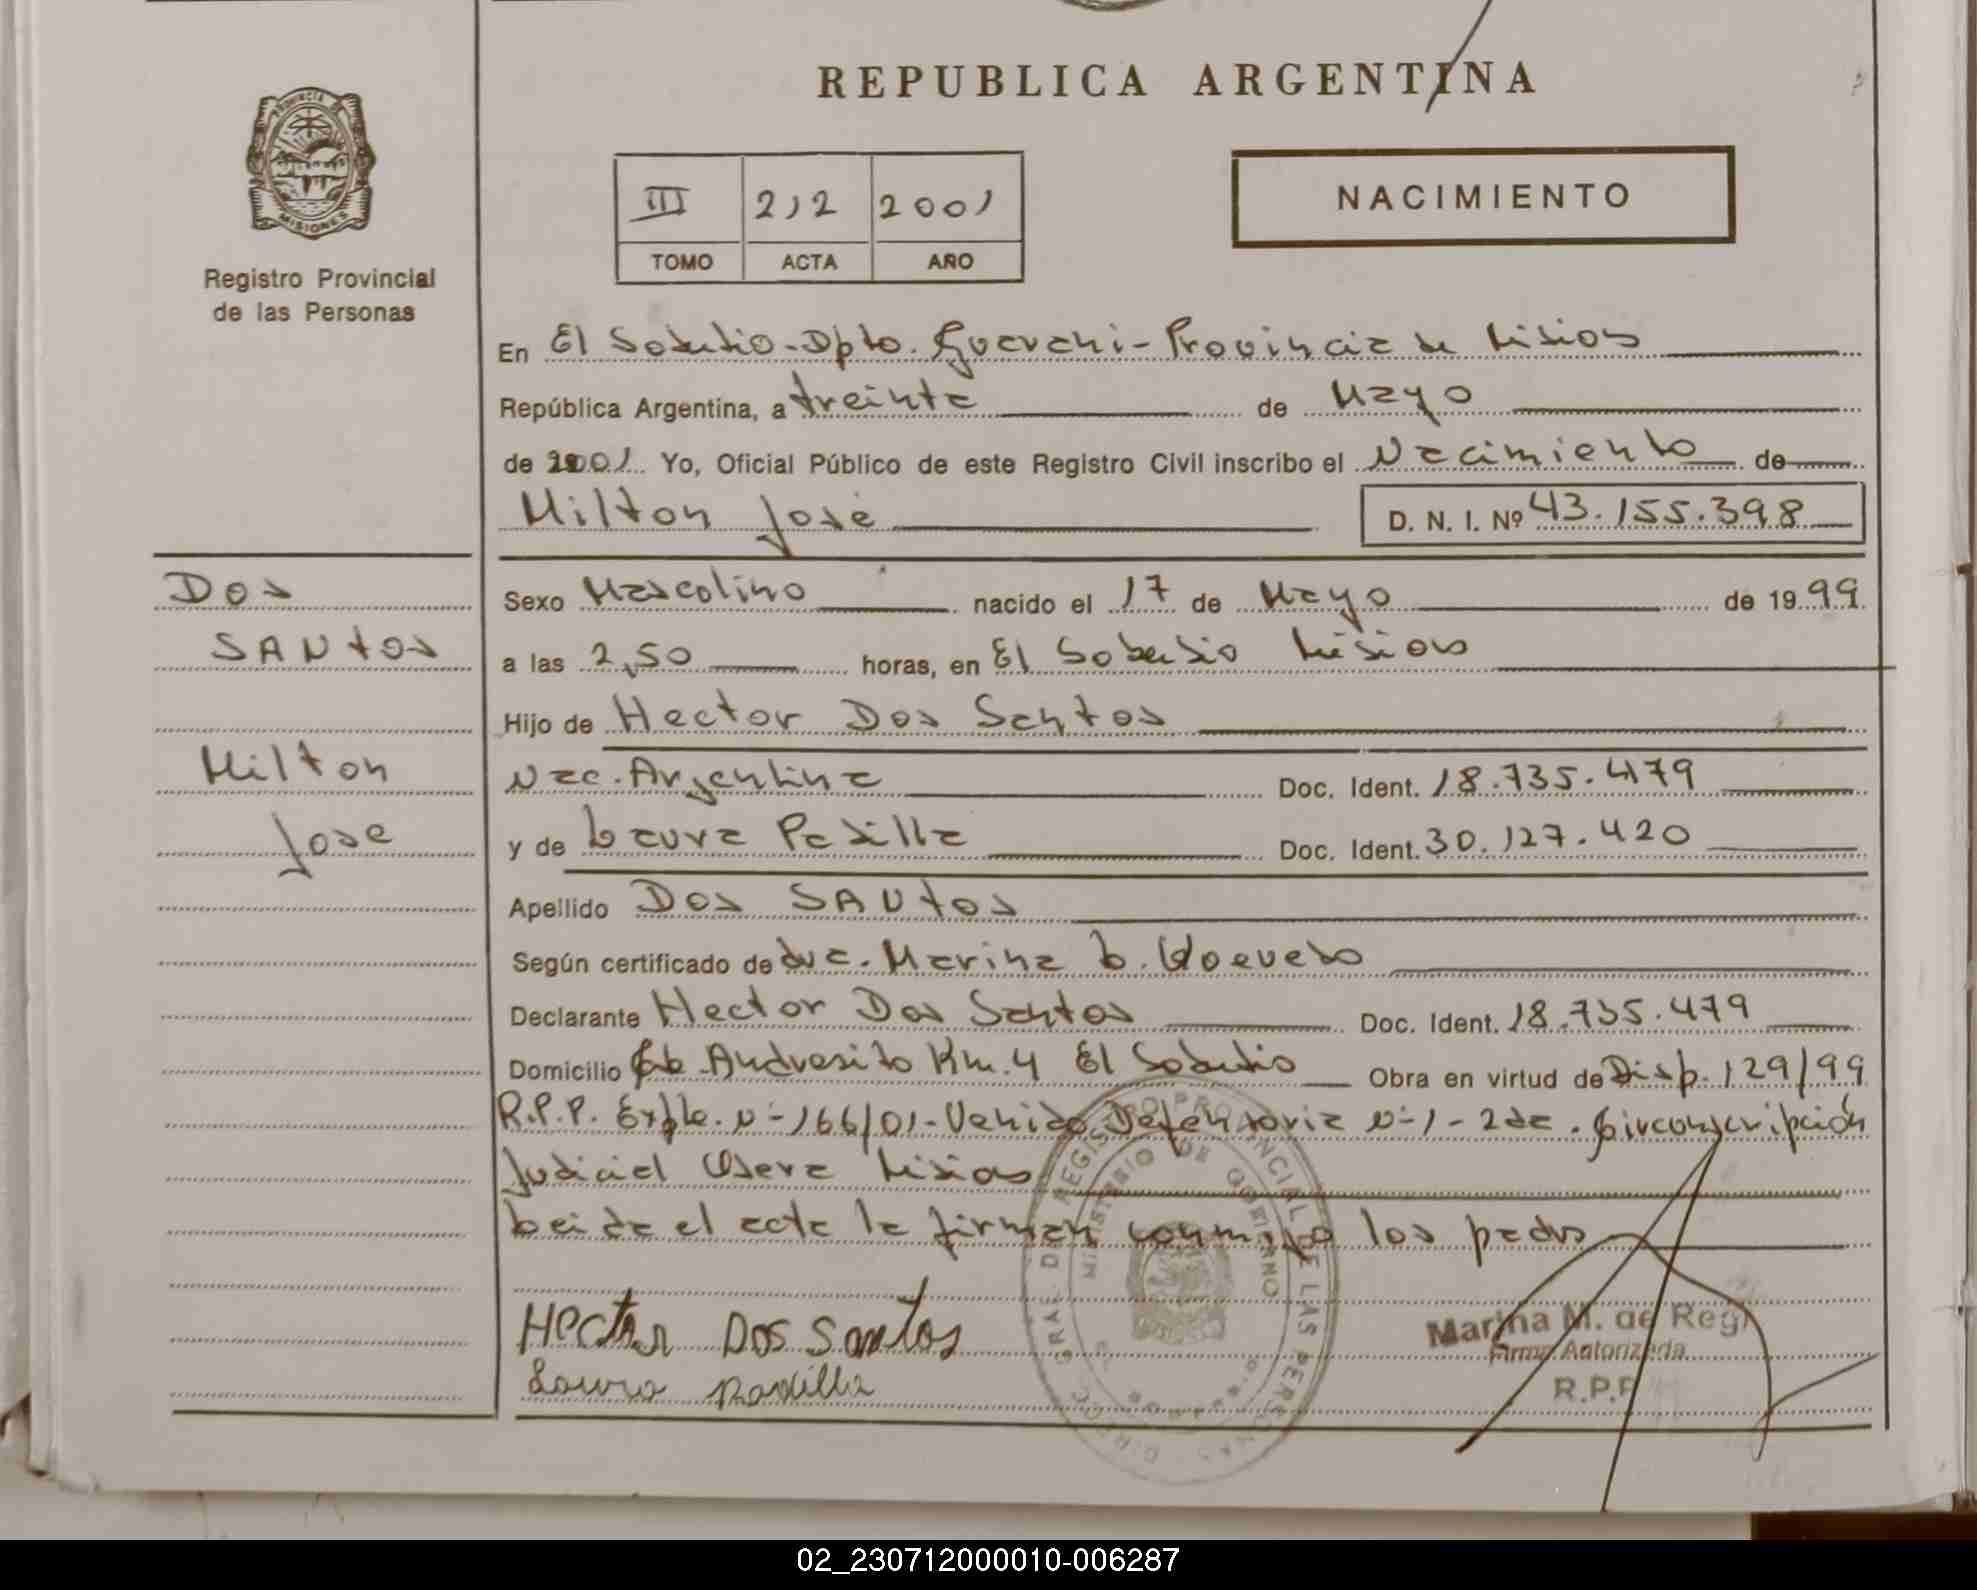 REPUBLICA ARGENTINA
PROVINCIA DE
MISIONES
Registro Provincial
de las Personas
III 212 2001
TOMO ACTA AÑO
NACIMIENTO
En El Soberbio - Dpto. Guarani - Provincia de Misiones
República Argentina, a treinta de Mayo
de 2001 Yo, Oficial Público de este Registro Civil inscribo el Nacimiento de
Milton José D. N. I. Nº 43.155.398
Sexo Mascolino nacido el 17 de Mayo de 1999
a las 2,50 horas, en El Soberbio Misiones
Hijo de Hector Dos Santos
Nac. Argentina Doc. Ident. 18.735.479
y de Laura Padilla Doc. Ident. 30.127.420
Apellido Dos SANtos
Según certificado de Marina L.
Declarante Hector Dos Santos Doc. Ident. 18.735.479
Domicilio Andresito Km. 4 El Soberbio Obra en virtud de Disp. 129/99
R.P.P. Expte. Nº 166/01 - Venido Defensoria Nº 1 - 2da. Circonscripción
Judicial Obera Misiones
Leida el acta la firman conmigo los padres
Dos
SANtos
Milton
Jose
Hector Dos Santos
Laura Padilla
DIRECC. GRAL. DEL REGISTRO PROVINCIAL DE LAS PERSONAS
MINISTERIO DE GOBIERNO
Marina M. de Regi
Firma Autorizada
R.P.P
02_230712000010-006287